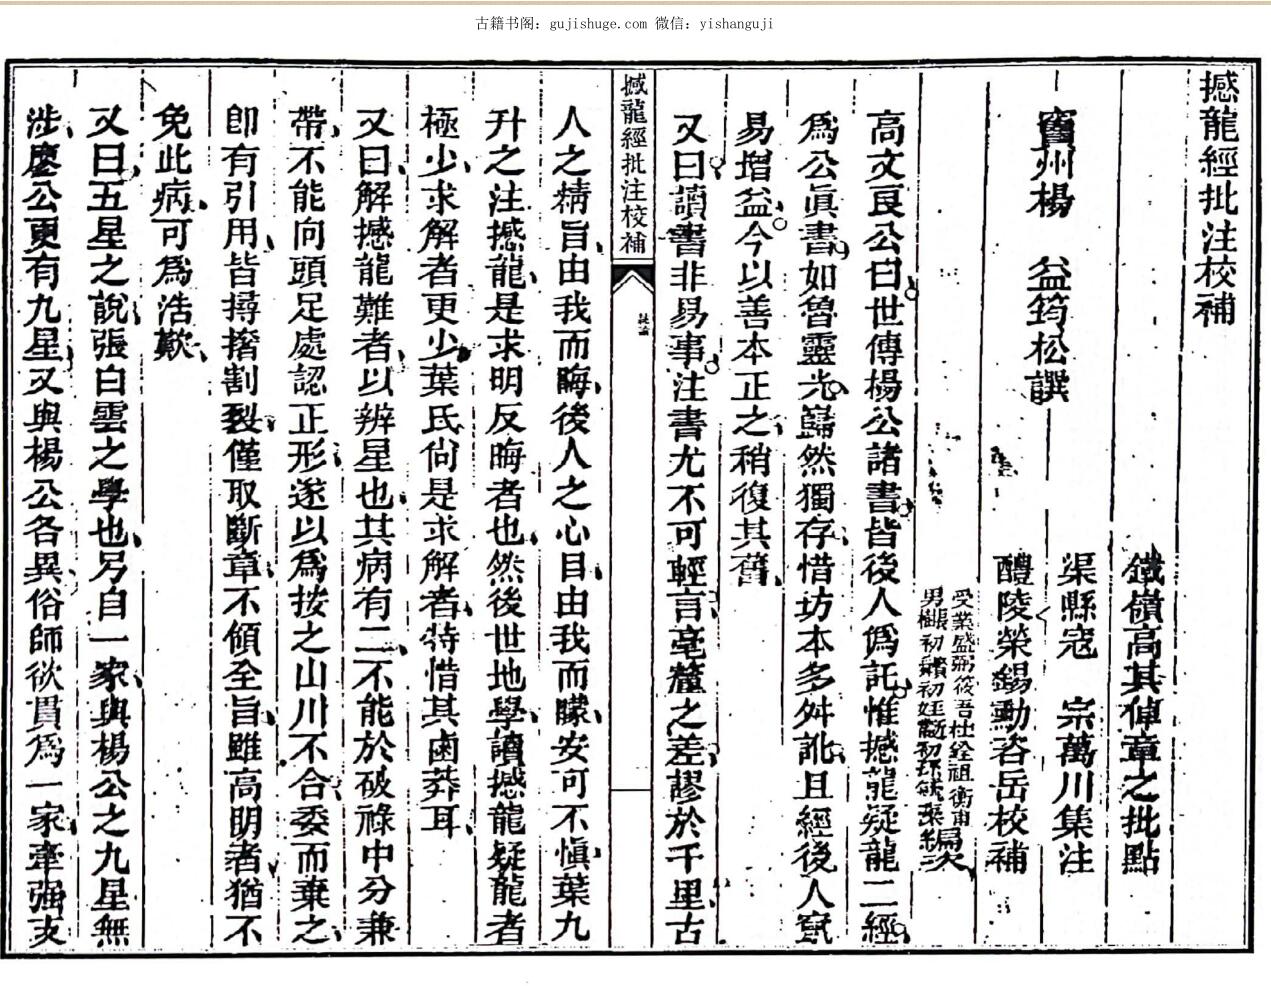 古籍书阁：gujishuge.com 微信：yishanguji
撼龍經批注校補
竇州楊　益筠松譔
鐵嶺高其倬章之批點
渠縣寇　宗萬川集注
醴陵榮錫勳咨岳校補
受業盛弼筱吾杜銓祖衡甫
男樾初 初 初 編次
高文良公曰世傳楊公諸書皆後人僞託惟撼龍疑龍二經
爲公眞書如魯靈光巋然獨存惜坊本多舛訛且經後人竄
易增益今以善本正之稍復其舊
又曰讀書非易事注書尤不可輕言毫釐之差謬於千里古
撼龍經批注校補
人之精旨由我而晦後人之心目由我而矇安可不愼葉九
升之注撼龍是求明反晦者也然後世地學讀撼龍疑龍者
極少求解者更少葉氏尙是求解者特惜其鹵莽耳
又曰解撼龍難者以辨星也其病有二不能於破祿中分兼
帶不能向頭足處認正形遂以爲按之山川不合委而棄之
卽有引用皆撏撦割裂僅取斷章不傾全旨雖高明者猶不
免此病可爲浩歎
又曰五星之說張白雲之學也另自一家與楊公之九星無
涉廖公更有九星又與楊公各異俗師欲貫爲一家牽强支